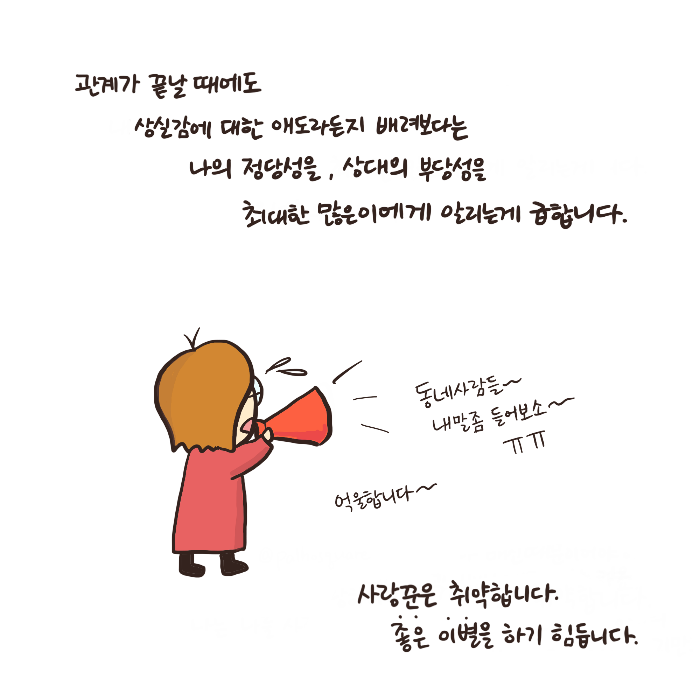 관계가 끝날 때에도
상실감에 대한 애도라든지 배려보다는
나의 정당성을, 상대의 부당성을
최대한 많은이에게 알리는게 급합니다.
동네사람들~
내말좀 들어보소~
ㅠㅠ
억울합니다~
사랑꾼은 취약합니다.
좋은 이별을 하기 힘듭니다.